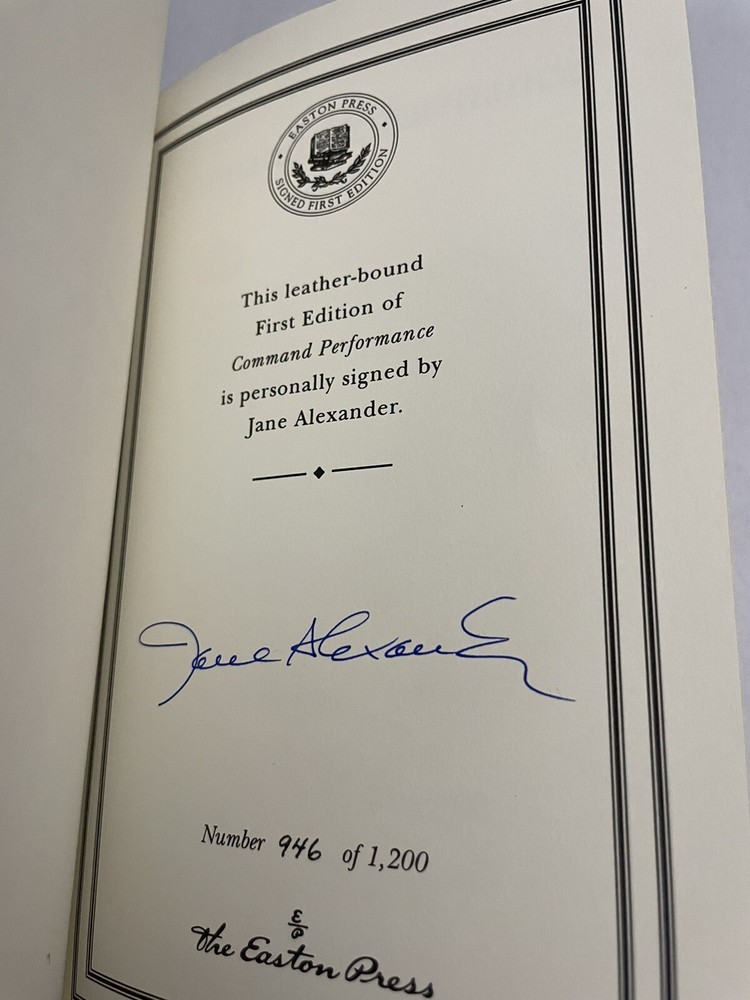 EASTON PRESS
SIGNED FIRST EDITION
This leather-bound
First Edition of
Command Performance
is personally signed by
Jane Alexander.
Jane Alexander
Number 946 of 1,200
EP
The Easton Press